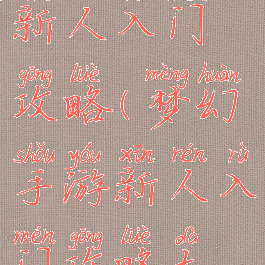 新人入门
gōng lüè mèng huàn
攻略(梦幻
shǒu yóu xīn rén rù
手游新人入
mén gōng lüè dà
门攻略大